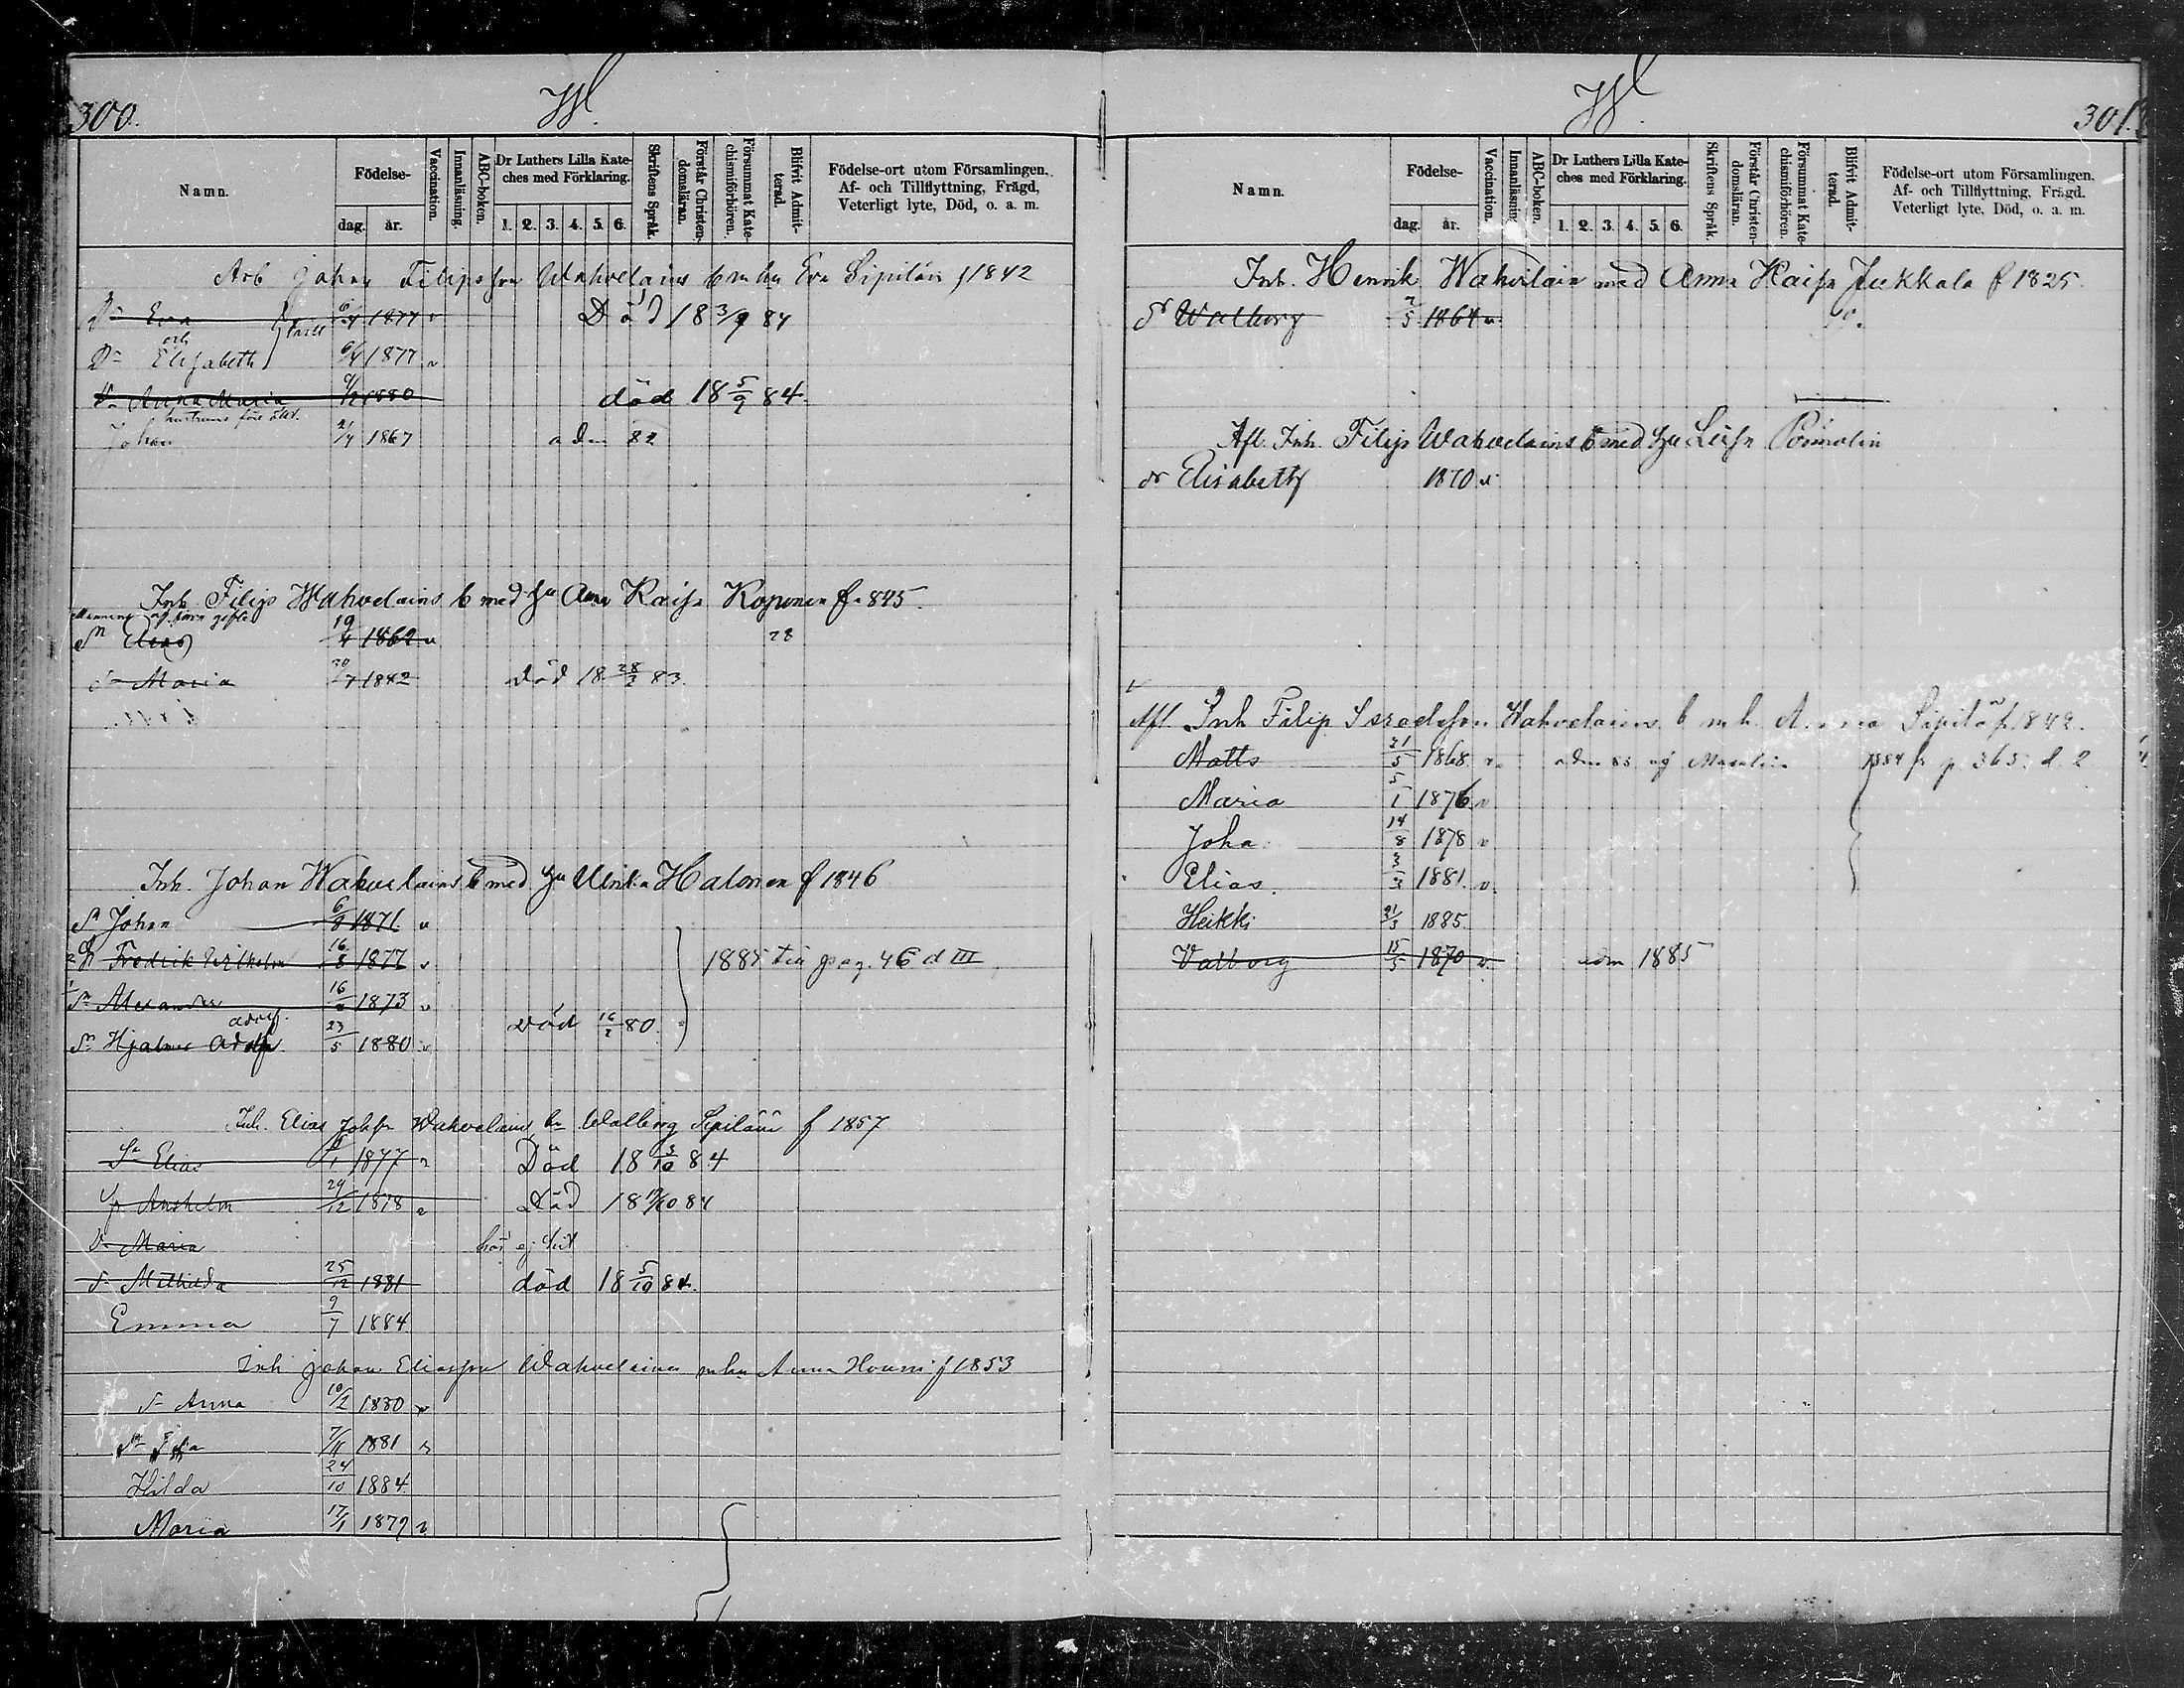 300.
W
Namn.
Födelse-
dag.
år.
Vaccination.
Innanläsning.
ABC-boken.
Dr Luthers Lilla Kate-
ches med Förklaring.
1. 2. 3. 4. 5. 6.
Skriftens Språk.
Förstår Christen-
domsläran.
Försummat Kate-
chismiförhören.
Blifvit Admit-
terad.
Födelse-ort utom Församlingen,
Af- och Tillflyttning, Frägd,
Veterligt lyte, Död, o. a. m.
Arb Johan Filipsson Wahvelains b m hu Eva Sipiläin f 1842
Dr Eva 6/4 1877 v Död 18 3/9 84
och
Dr Elisabeth 6/4 1877 v
Dr Anna Maria 1880 död 18 5/9 84.
hustruns före äkt.
Johan 21/4 1867 adm 82
Inh. Filip Wahvelains b med hu Anna Kaisa Koponen f. 845.
Sn Elias 19/4 1862 v 78
Dr Maria 20/7 1842 död 18 28/2 83.
Inh. Johan Wahvelains b med hu Ulrika Halonen f 1846
Sn Johan 6/8 1871 v
2 Sn Fredrik Wilhelm 16/8 1877 v 1885 till pag. 46 d III
1 Sn Alexander 16 1873 v
Död 16/2 80.
Adolf
Sn Hjalmar Adolf 23/5 1880 v
Inh. Elias Johsn Wahvelains b m Walborg Sipiläin f 1857
Sn Elias 1877 v Död 18 3/10 84
Sn Anshelm 29/12 1878 v Död 18 /10 84
Dr Maria hör ej hit
Dr Mathilda 25/12 1881 död 18 5/10 84.
Emma 9/7 1884
Inh Johan Eliasson Wahvelainen m hu Anna Houni f 1853
Dr Anna 10/2 1880 v
7/11 1881 v
Hilda 24/10 1884
Maria 17/1 1879 v
W
301.
Namn.
Födelse-
dag.
år.
Vaccination.
Innanläsning.
ABC-boken.
Dr Luthers Lilla Kate-
ches med Förklaring.
1. 2. 3. 4. 5. 6.
Skriftens Språk.
Förstår Christen-
domsläran.
Försummat Kate-
chismiförhören.
Blifvit Admit-
terad.
Födelse-ort utom Församlingen,
Af- och Tillflyttning, Frägd.
Veterligt lyte, Död, o. a. m.
Inh. Henrik Wahvelain med Anna Kaisa Jukkala f 1825.
dr Walborg 2/5 1864 v
Afl. Inh. Filip Wahvelains b med hu Leisa
dr Elisabeth 1870 v
Afl. Inh Filip Israelsson Wahvelains b m h. Anna Sipilä f. 1842.
Matts 21/5 1868 v 1884 fr p. 363, d. 2
Maria 5/1 1876 v
Joha 14/8 1878 v
Elias. 3/3 1881. v.
Heikki 21/3 1885.
Valborg 15/5 1870 v. adm 1885